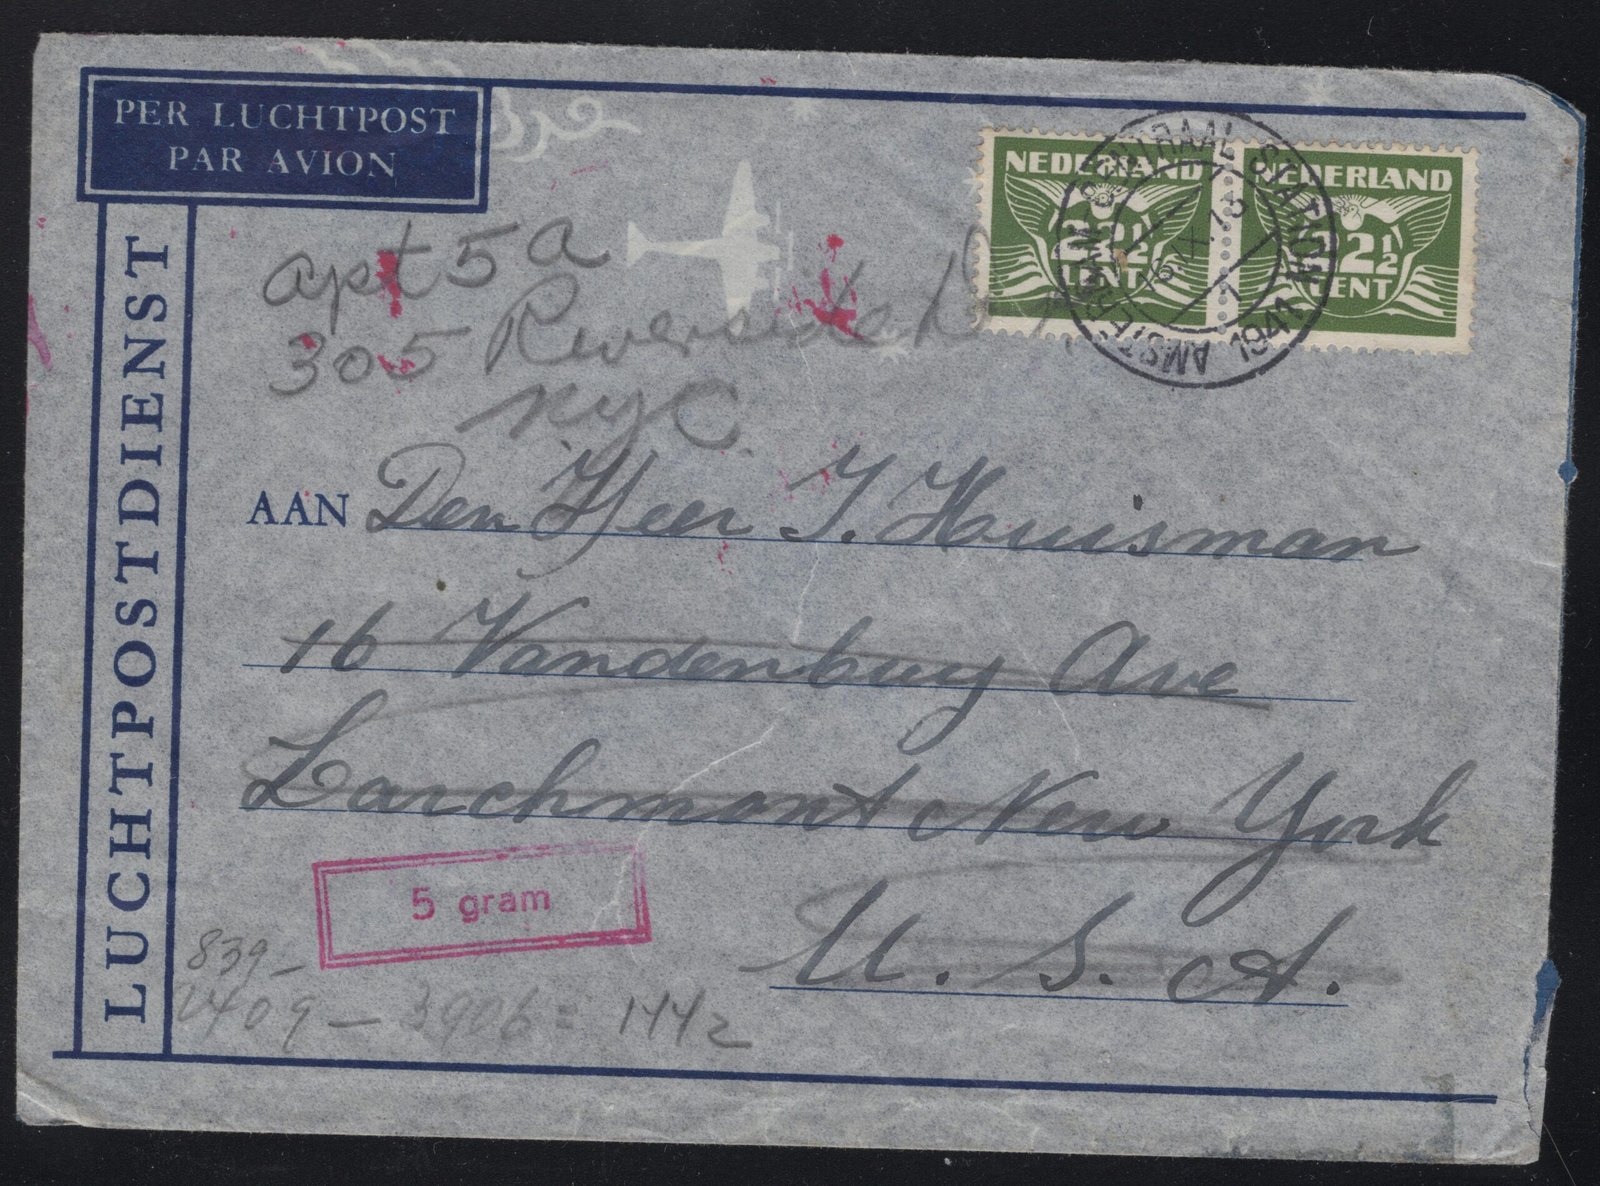 PER LUCHTPOST
PAR AVION
LUCHTPOSTDIENST
NEDERLAND
2½
CENT
NEDERLAND
2½
CENT
AMSTERDAM-CENTRAAL STATION
1941
apt 5a
305 Riverside
NYC
AAN Den Heer J. Huisman
16 Vandenburg Ave
Larchmont New York
U. S. A.
5 gram
839-
2409 - 3906 = 1442